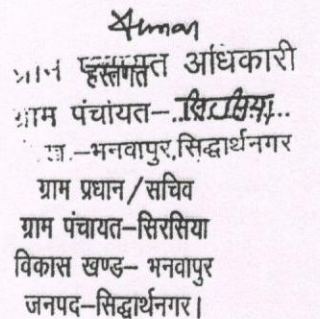 ग्राम पंचायत अधिकारी
हस्तगत
ग्राम पंचायत-..सिरसिया..
-भनवापुर,सिद्धार्थनगर
ग्राम प्रधान/सचिव
ग्राम पंचायत-सिरसिया
विकास खण्ड- भनवापुर
जनपद-सिद्धार्थनगर।